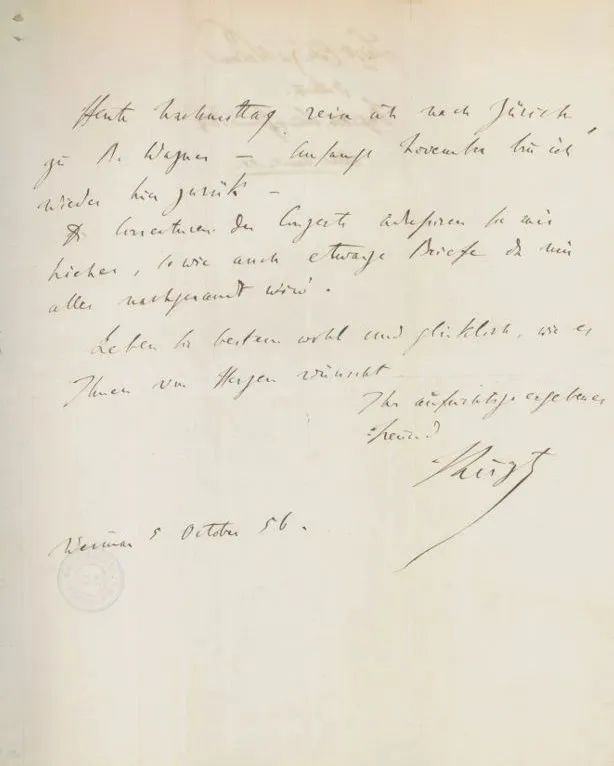 Heute Nachmittag reise ich nach Zürich
zu R. Wagner — Anfangs November bin ich
wieder hier zurück —
Die Correcturen des Concerts adressiren Sie mir
hieher, so wie auch etwaige Briefe da mir
alles nachgesandt wird.
Leben Sie bestens wohl und glücklich, wie es
Ihnen von Herzen wünscht
Ihr aufrichtigst ergebener
Freund
FLiszt
Weimar 5 October 56.